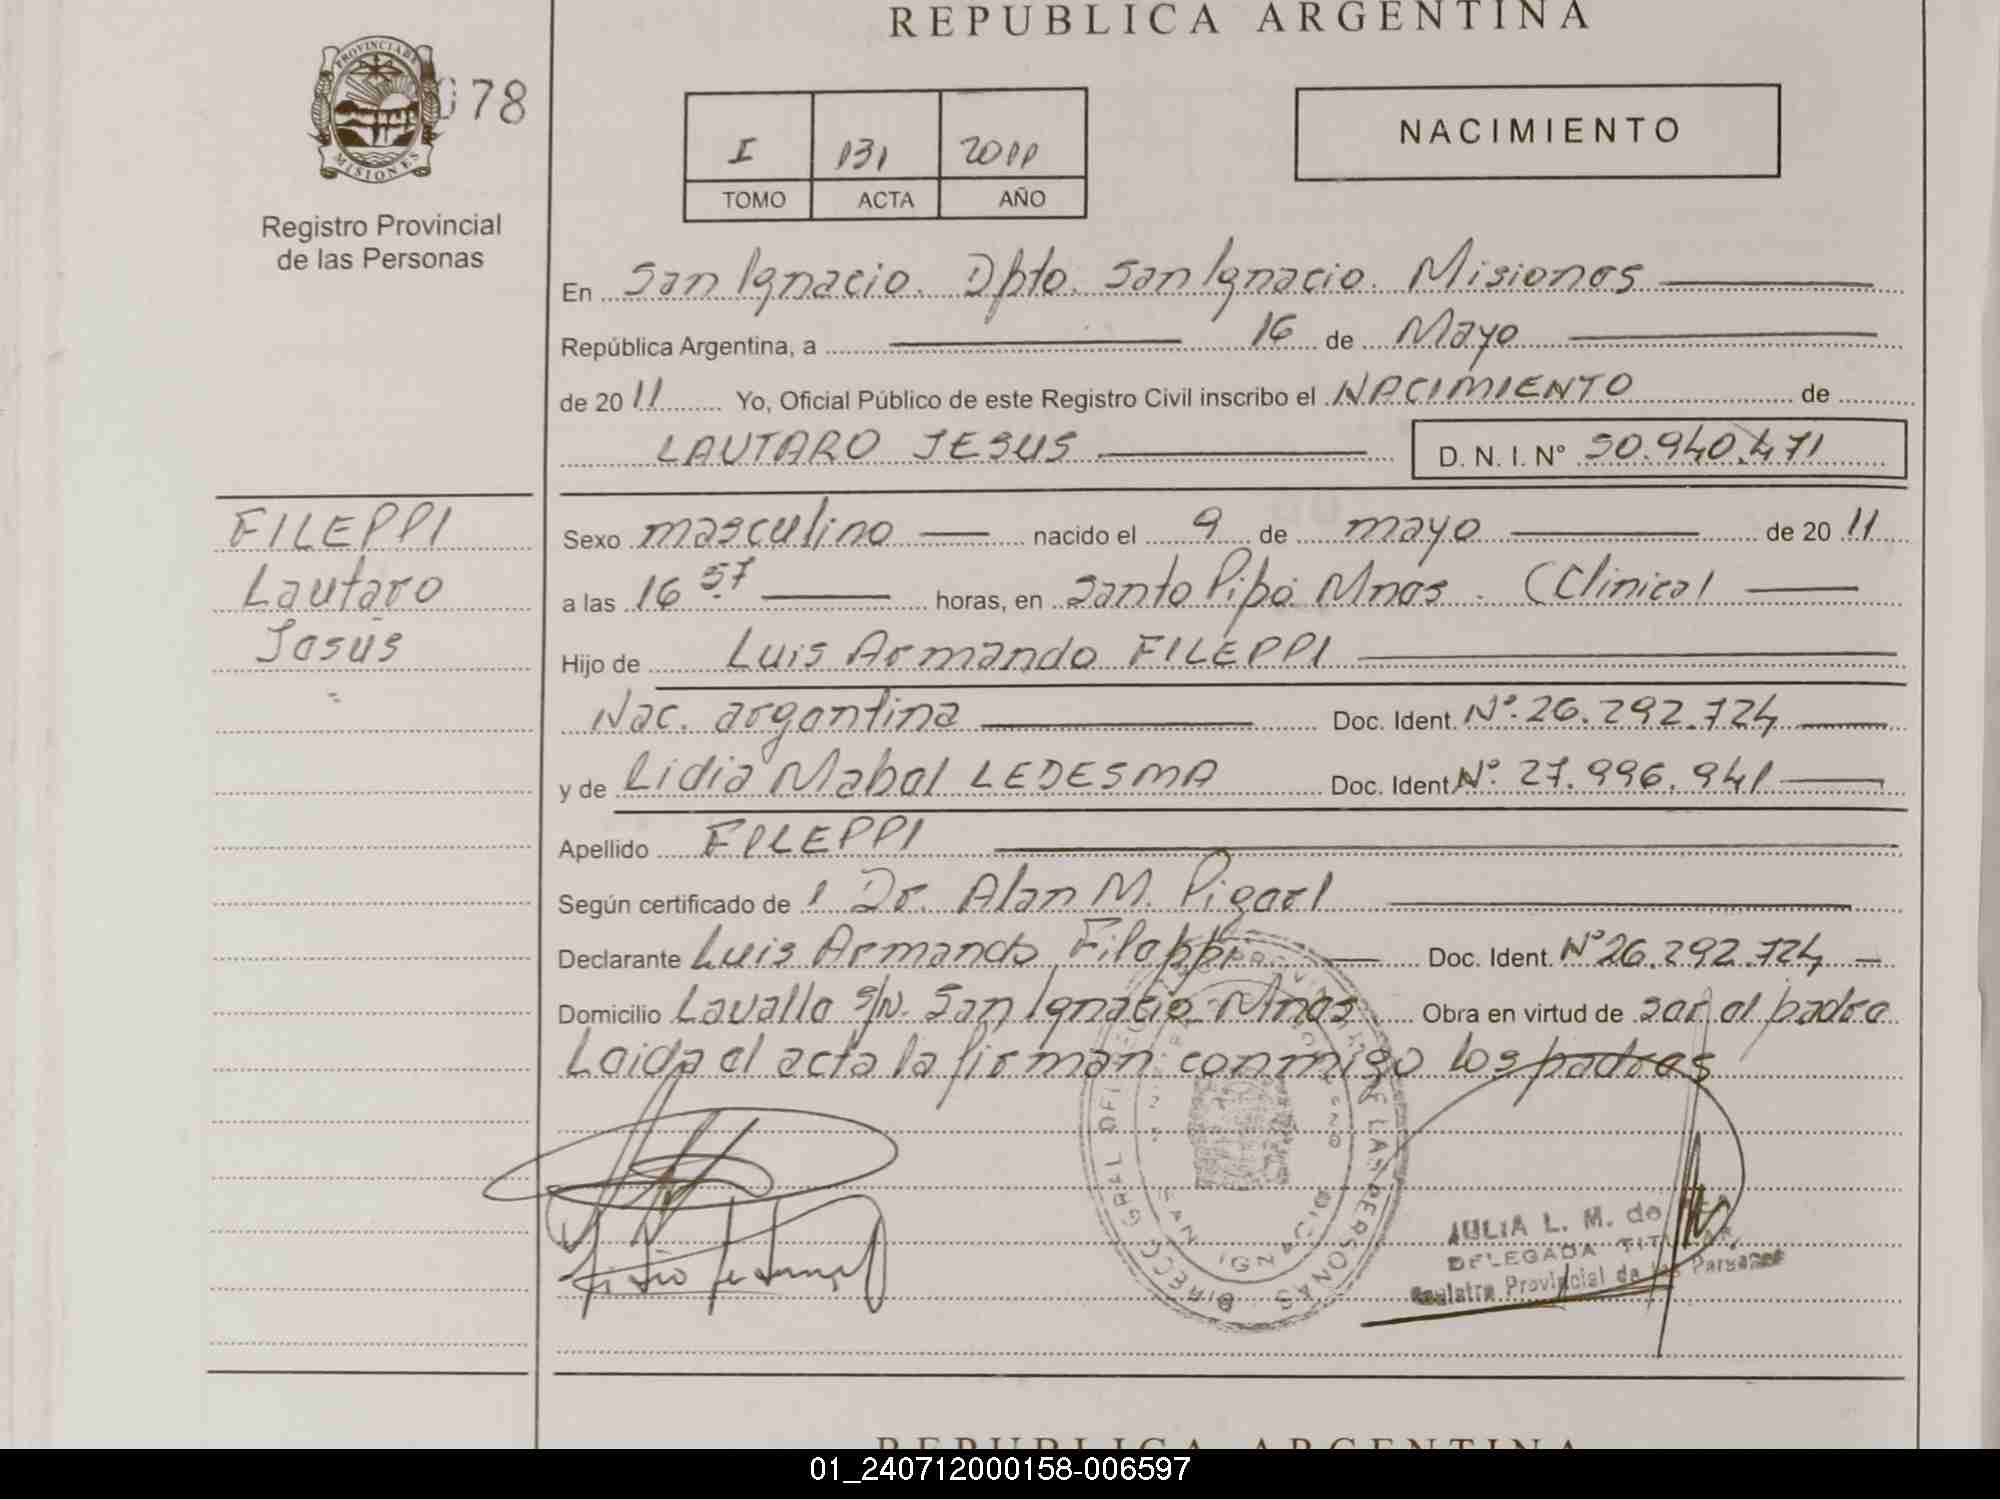 REPUBLICA ARGENTINA
PROVINCIA DE MISIONES
078
Registro Provincial
de las Personas
I 131 2011
TOMO ACTA AÑO
NACIMIENTO
En San Ignacio. Dpto. San Ignacio. Misiones
República Argentina, a 16 de Mayo
de 2011 Yo, Oficial Público de este Registro Civil inscribo el NACIMIENTO de
LAUTARO JESUS D. N. I. Nº 50.940.471
FILEPPI
Lautaro
Jesús
Sexo masculino nacido el 9 de mayo de 2011
a las 16 57 horas, en Santo Pipó Mnes. (Clinica)
Hijo de Luis Armando FILEPPI
Nac. argentina Doc. Ident. Nº. 26.292.724
y de Lidia Mabel LEDESMA Doc. Ident Nº. 27.996.941
Apellido FILEPPI
Según certificado de 1 Dr. Alan M.
Declarante Luis Armando Fileppi Doc. Ident. Nº 26.292.724
Domicilio Lavalle s/N. San Ignacio Mnes. Obra en virtud de ser el padre
Leida el acta la firman conmigo los padres
DE LAS PERSONAS
SAN IGNACIO
JULIA L. M. de
DELEGADA TITULAR
Registro Provincial de las Personas
REPUBLICA ARGENTINA
01_240712000158-006597